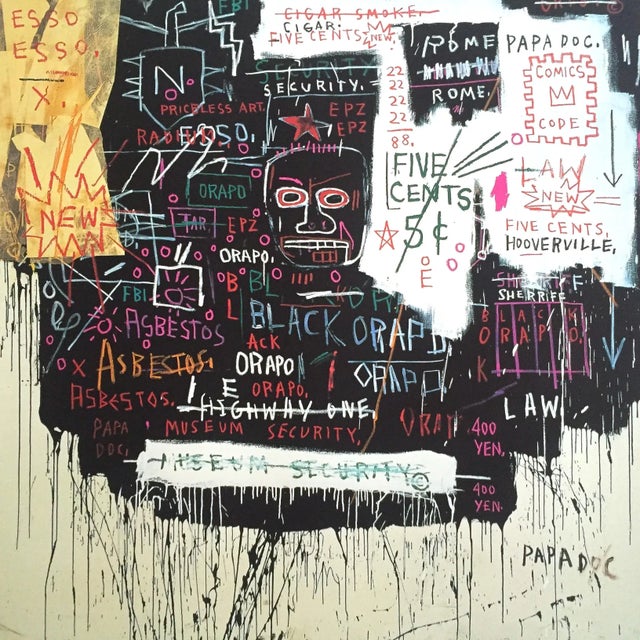 ESSO
ESSO.
X.
NEW
FBI
N
PRICELESS ART.
RADIUM
ESSO,
CIGAR SMOKE.
CIGAR:
FIVE CENTS
NEW
SECURITY
SECURITY.
EPZ
EPZ
22
22
22
22
88.
ROME
ROME.
PAPA DOC.
COMICS
CODE
FIVE
CENTS
5¢
LAW
NEW
FIVE CENTS,
HOOVERVILLE,
ORAPO
TAR
EPZ
ORAPO.
FBI
BL
BLACK ORAPO
ASBESTOS
ASBESTOS.
ASBESTOS.
ACK
ORAPO
ORAPO.
OKAY
SHERRIFF
SHERRIFF
BLACK
ORAPO.
HIGHWAY ONE,
LAW
PAPA
DOC,
MUSEUM SECURITY,
MUSEUM SECURITY ©
400
YEN,
400
YEN.
PAPA DOC